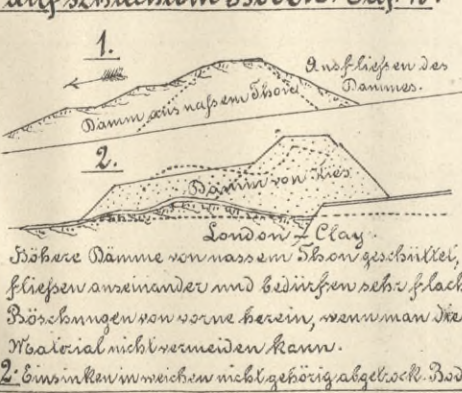 auf schlechtem Boden. Taf. 10.
1.
Ausfließen des
Dammes.
Damm aus naßem Thone
2.
Damm von Kies
London - Clay.
Höhere Dämme von nassem Thon geschüttet,
fließen auseinander und bedürfen sehr flach
Böschungen von vorne herein, wenn man die
Material nicht vermeiden kann.
2: Einsinken in weichen nicht gehörig abgetrock. Bod